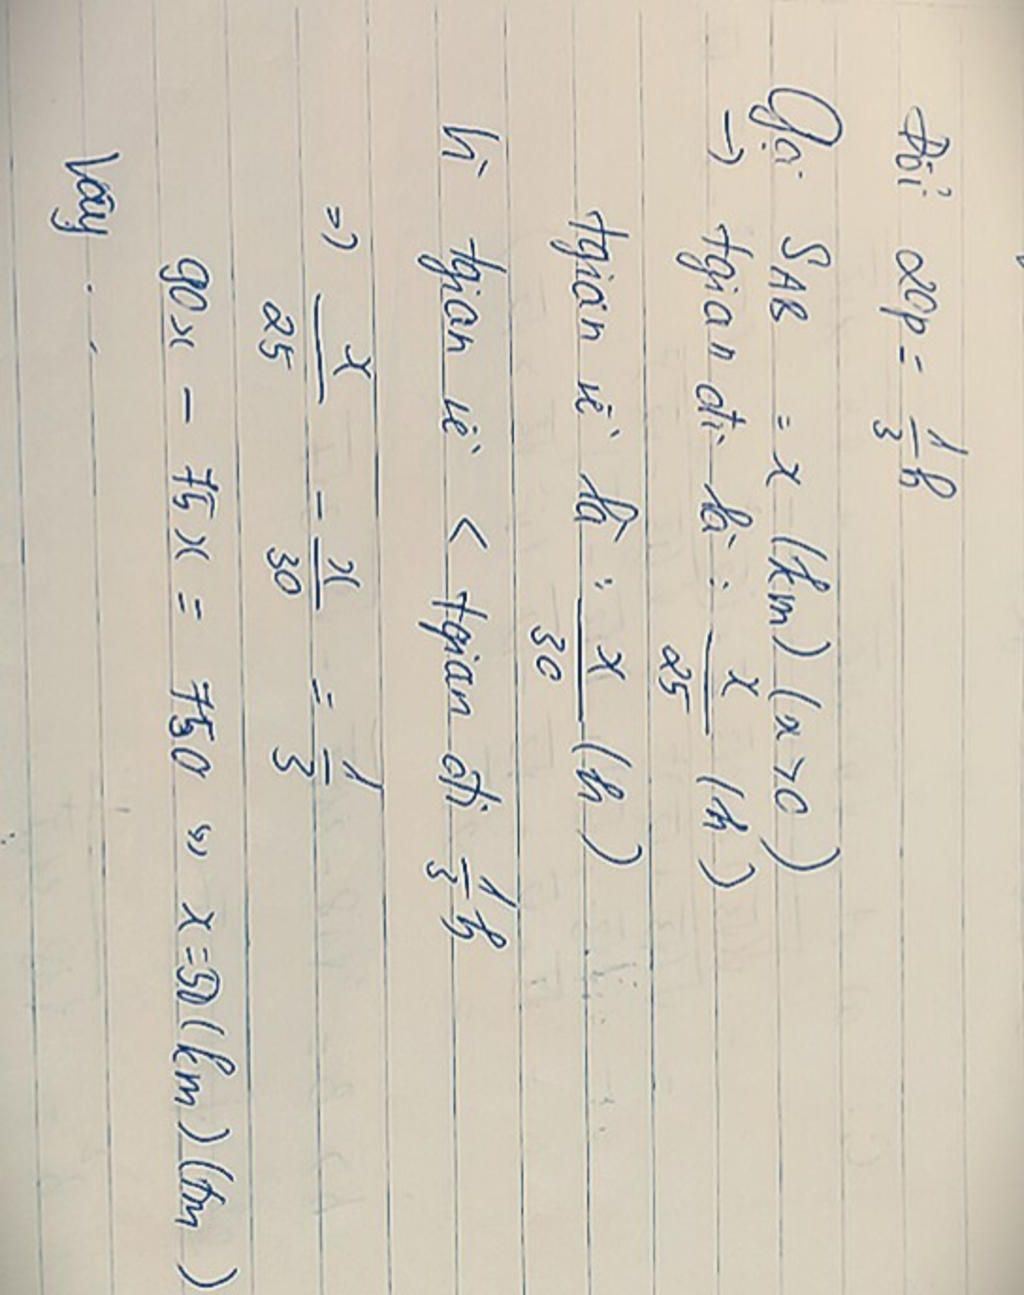 Đổi 20p = 1/3 h
Gọi SAB = x (km) (x > 0)
→ tgian đi là : x/25 (h)
tgian về là : x/30 (h)
Vì tgian về < tgian đi 1/3 h
=> x/25 - x/30 = 1/3
90x - 75x = 750 => x = 50 (km) (tm)
Vậy . . .